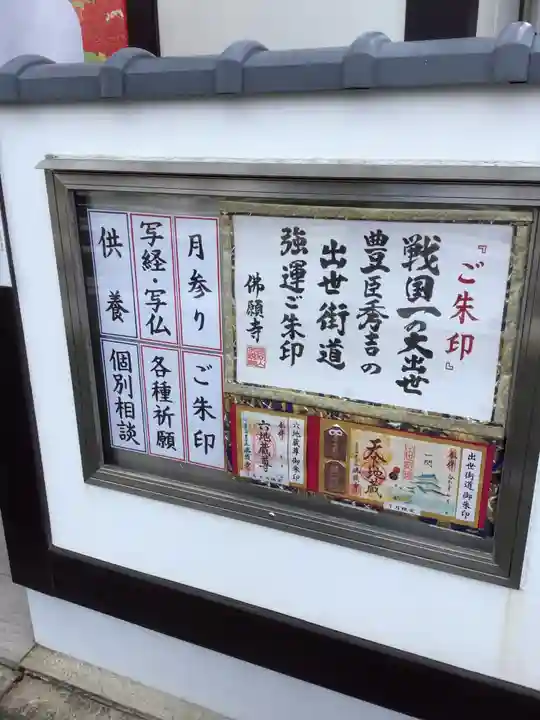 『ご朱印』
戦国一の大出世
豊臣秀吉の
出世街道
強運ご朱印
佛願寺
月参り
写経・写仏
供養
ご朱印
各種祈願
個別相談
出世街道御朱印
六地蔵尊御朱印
六地蔵尊